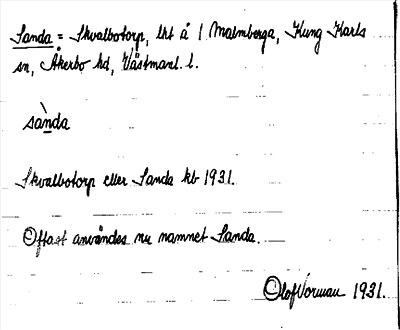 Sanda = Skvalbotorp, lht å 1 Malmberga, Kung Karls
sn, Åkerbo hd, Västmanl. l.
sànda
Skvalbotorp eller Sanda kb 1931.
Oftast användes nu namnet Sanda.
Olof Norman 1931.